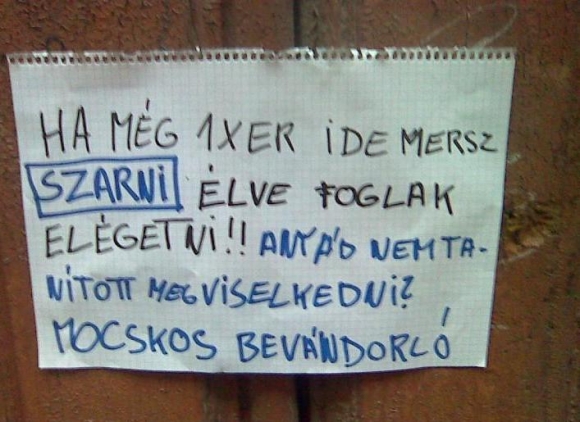 HA MÉG 1XER IDE MERSZ
SZARNI ÉLVE FOGLAK
ELÉGETNI!! ANYÁD NEM TA-
NÍTOTT MEGVISELKEDNI?
MOCSKOS BEVÁNDORLÓ